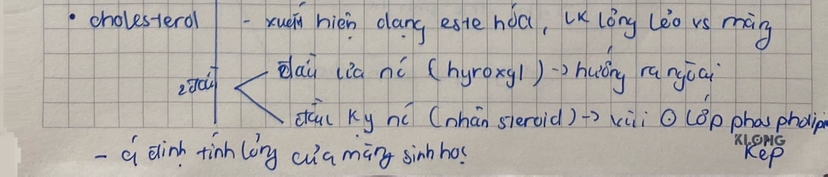 • cholesterol - xuất hiện dạng este hóa, LK lỏng lẻo vs màng
2 đầu
đầu ưa nć (hyroxyl) -> hướng ra ngoài
đầu kỵ nć (nhân steroid) -> vùi ʘ lớp phospholipi
KLONG
kép
- ổ định tính lỏng của màng sinh học